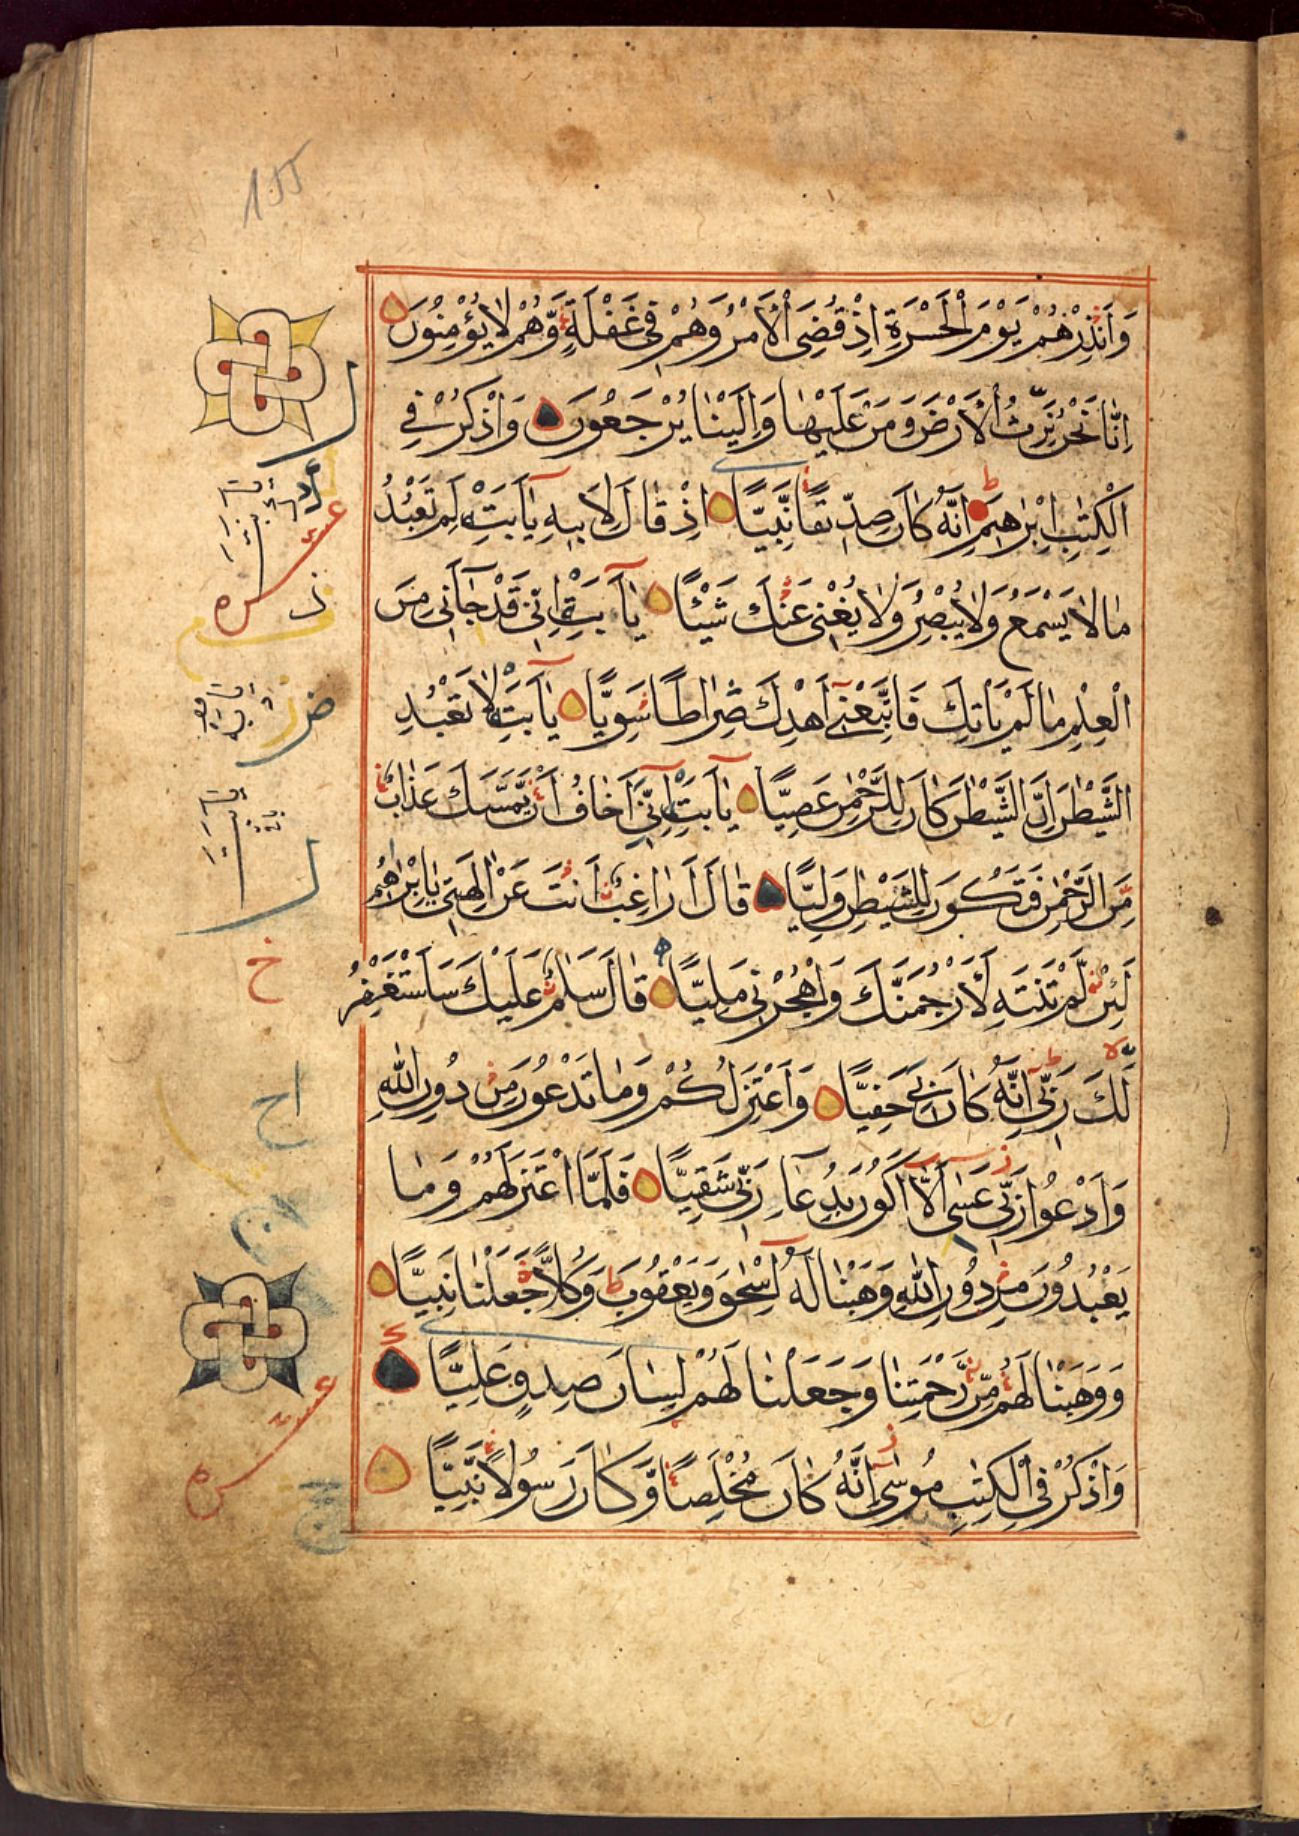 155
وَاَنْذِرْهُمْ يَوْمَ الْحَسْرَةِ اِذْ قُضِىَ الْاَمْرُ وَهُمْ فِى غَفْلَةٍ وَّهُمْ لَا يُؤْمِنُوْنَ
اِنَّا نَحْنُ نَرِثُ الْاَرْضَ وَمَنْ عَلَيْهَا وَاِلَيْنَا يُرْجَعُوْنَ وَاذْكُرْ فِى
الْكِتٰبِ اِبْرٰهِيْمَ اِنَّهُ كَانَ صِدِّيْقًا نَّبِيًّا اِذْ قَالَ لِاَبِيْهِ يٰاَبَتِ لِمَ تَعْبُدُ
مَا لَا يَسْمَعُ وَلَا يُبْصِرُ وَلَا يُغْنِى عَنْكَ شَيْئًا يٰاَبَتِ اِنِّى قَدْ جَاۤءَنِى مِنَ
الْعِلْمِ مَا لَمْ يَاْتِكَ فَاتَّبِعْنِى اَهْدِكَ صِرَاطًا سَوِيًّا يٰاَبَتِ لَا تَعْبُدِ
الشَّيْطٰنَ اِنَّ الشَّيْطٰنَ كَانَ لِلرَّحْمٰنِ عَصِيًّا يٰاَبَتِ اِنِّى اَخَافُ اَنْ يَّمَسَّكَ عَذَابٌ
مِّنَ الرَّحْمٰنِ فَتَكُوْنَ لِلشَّيْطٰنِ وَلِيًّا قَالَ اَرَاغِبٌ اَنْتَ عَنْ اٰلِهَتِى يٰاِبْرٰهِيْمُ
لَئِنْ لَّمْ تَنْتَهِ لَاَرْجُمَنَّكَ وَاهْجُرْنِى مَلِيًّا قَالَ سَلٰمٌ عَلَيْكَ سَاَسْتَغْفِرُ
لَكَ رَبِّى اِنَّهُ كَانَ بِى حَفِيًّا وَاَعْتَزِلُكُمْ وَمَا تَدْعُوْنَ مِنْ دُوْنِ اللّٰهِ
وَاَدْعُوْا رَبِّى عَسٰى اَلَّا اَكُوْنَ بِدُعَاۤءِ رَبِّى شَقِيًّا فَلَمَّا اعْتَزَلَهُمْ وَمَا
يَعْبُدُوْنَ مِنْ دُوْنِ اللّٰهِ وَهَبْنَا لَهُ اِسْحٰقَ وَيَعْقُوْبَ وَكُلًّا جَعَلْنَا نَبِيًّا
وَوَهَبْنَا لَهُمْ مِّنْ رَّحْمَتِنَا وَجَعَلْنَا لَهُمْ لِسَانَ صِدْقٍ عَلِيًّا
وَاذْكُرْ فِى الْكِتٰبِ مُوْسٰى اِنَّهُ كَانَ مُخْلَصًا وَّكَانَ رَسُوْلًا نَّبِيًّا